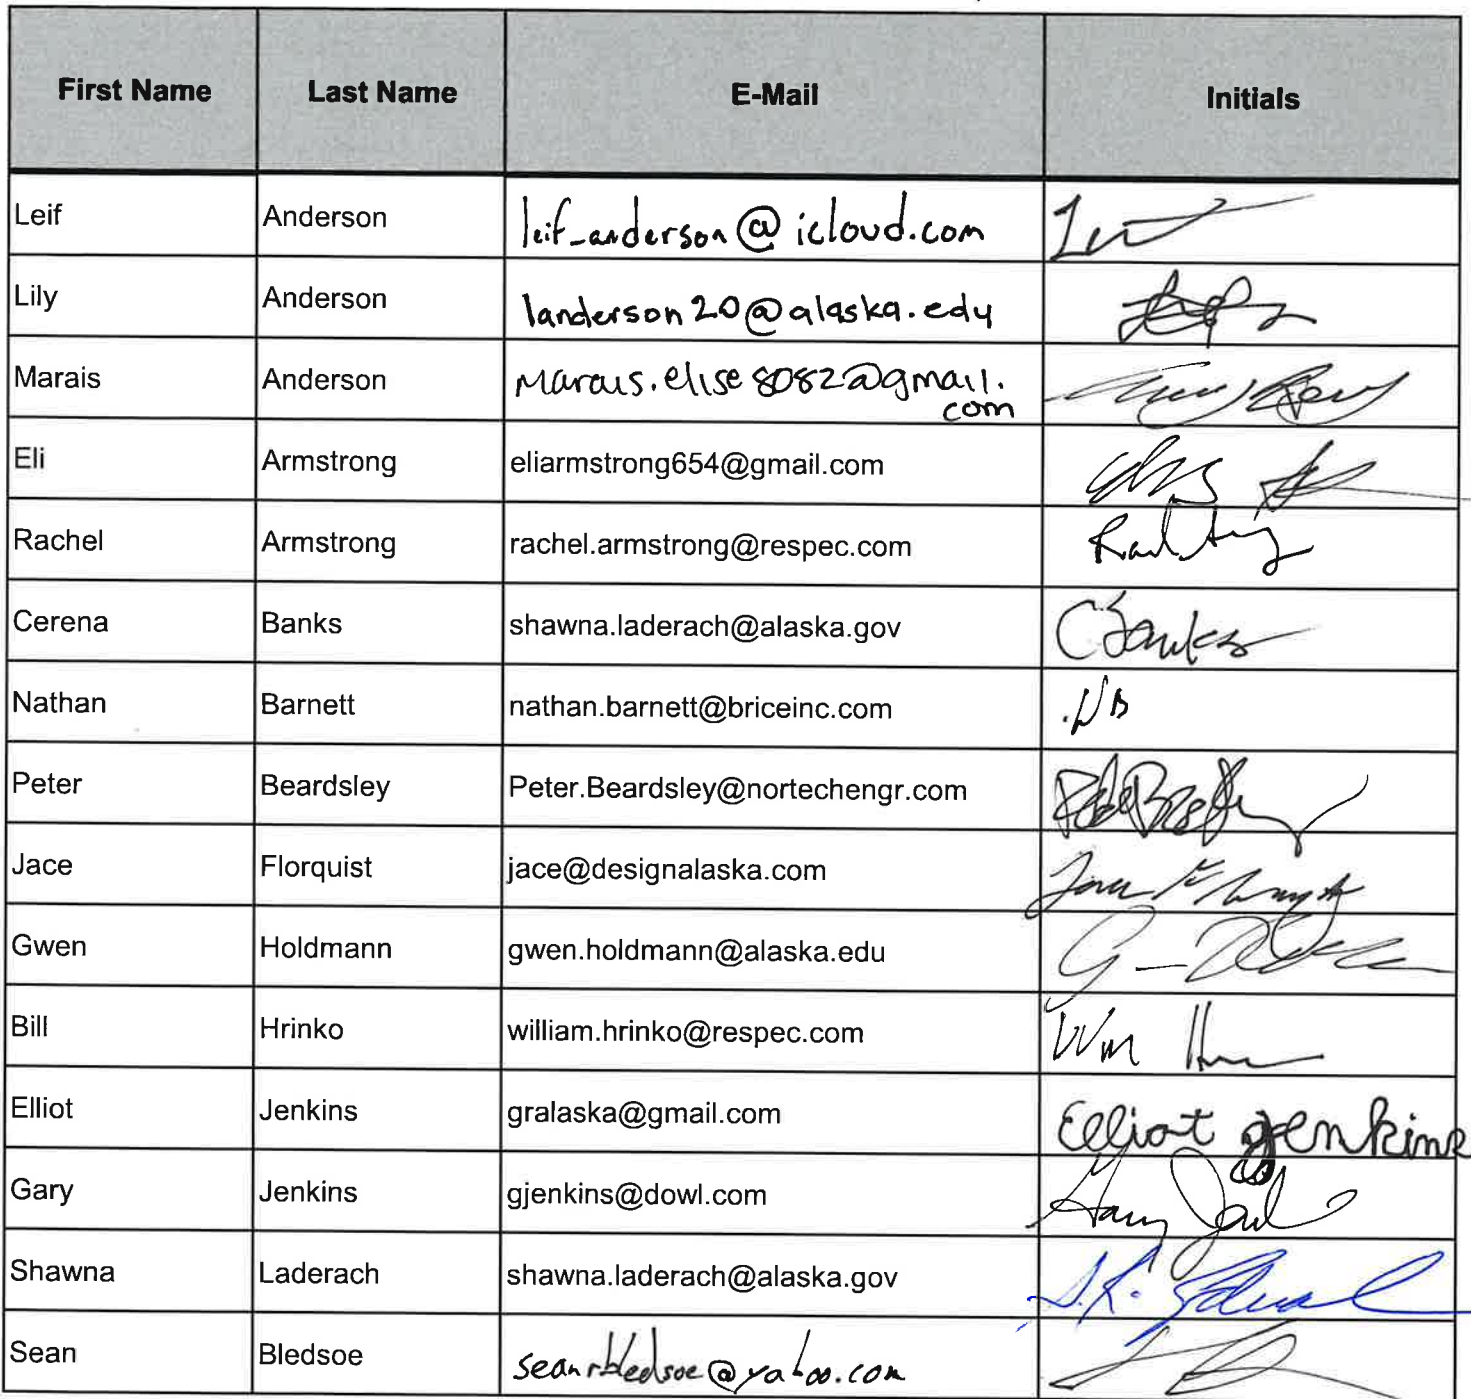 First Name Last Name E-Mail Initials
Leif Anderson leif_anderson@icloud.com
Lily Anderson landerson20@alaska.edu
Marais Anderson marais.elise8082@gmail.
com
Eli Armstrong eliarmstrong654@gmail.com
Rachel Armstrong rachel.armstrong@respec.com
Cerena Banks shawna.laderach@alaska.gov CBanks
Nathan Barnett nathan.barnett@briceinc.com NB
Peter Beardsley Peter.Beardsley@nortechengr.com
Jace Florquist jace@designalaska.com
Gwen Holdmann gwen.holdmann@alaska.edu
Bill Hrinko william.hrinko@respec.com
Elliot Jenkins gralaska@gmail.com Elliot Jenkins
Gary Jenkins gjenkins@dowl.com
Shawna Laderach shawna.laderach@alaska.gov
Sean Bledsoe seanrbledsoe@yahoo.com